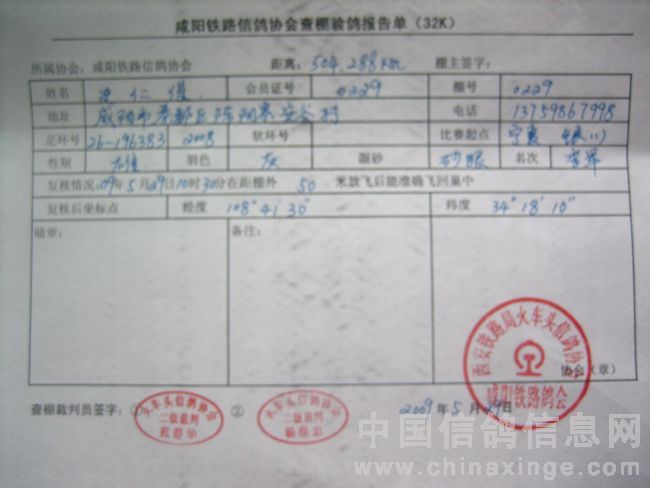 咸阳铁路信鸽协会查棚验鸽报告单（32K）
所属协会：咸阳铁路信鸽协会 距离：504.288Km 棚主签字：
姓名 仁 会员证号 0229 棚号 0229
地址 咸阳市秦都区 村 电话 13759867998
足环号 26-196383 2008 软环号 比赛起点 宁夏 银川
性别 雄 羽色 灰 眼砂 砂眼 名次 季军
复核情况：09年5月29日10时30分在距棚外 50 米放飞后能准确飞回巢中
复核后坐标点 经度 108°41′30″ 纬度 34°18′10″
暗章： 备注：
西安铁路局火车头信鸽协会
咸阳铁路鸽会
协会（章）
查棚裁判员签字：① ②
火车头信鸽协会
二级裁判
火车头信鸽协会
二级裁判
2009年5月29日
中国信鸽信息网
www.chinaxinge.com